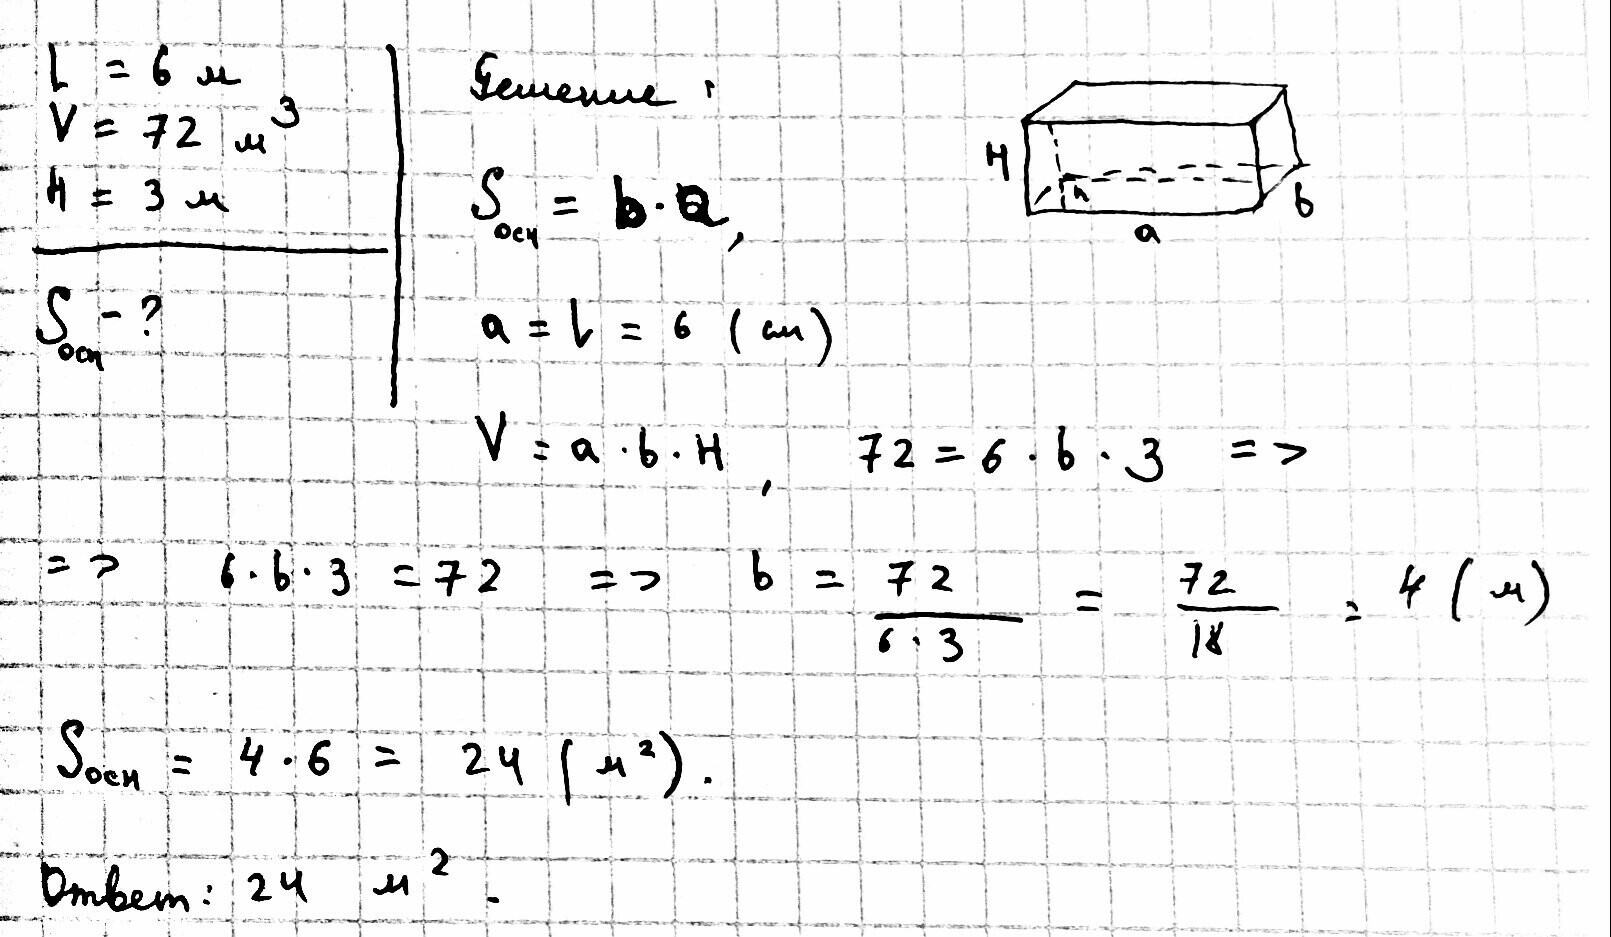 L = 6 м
V = 72 м³
H = 3 м
Sосн - ?
Решение:
Sосн = b · a,
a = L = 6 (см)
V = a · b · H, 72 = 6 · b · 3 =>
=> 6 · b · 3 = 72 => b = 72 / 6 · 3 = 72 / 18 = 4 (м)
Sосн = 4 · 6 = 24 (м²).
Ответ: 24 м².
H
h
a
b